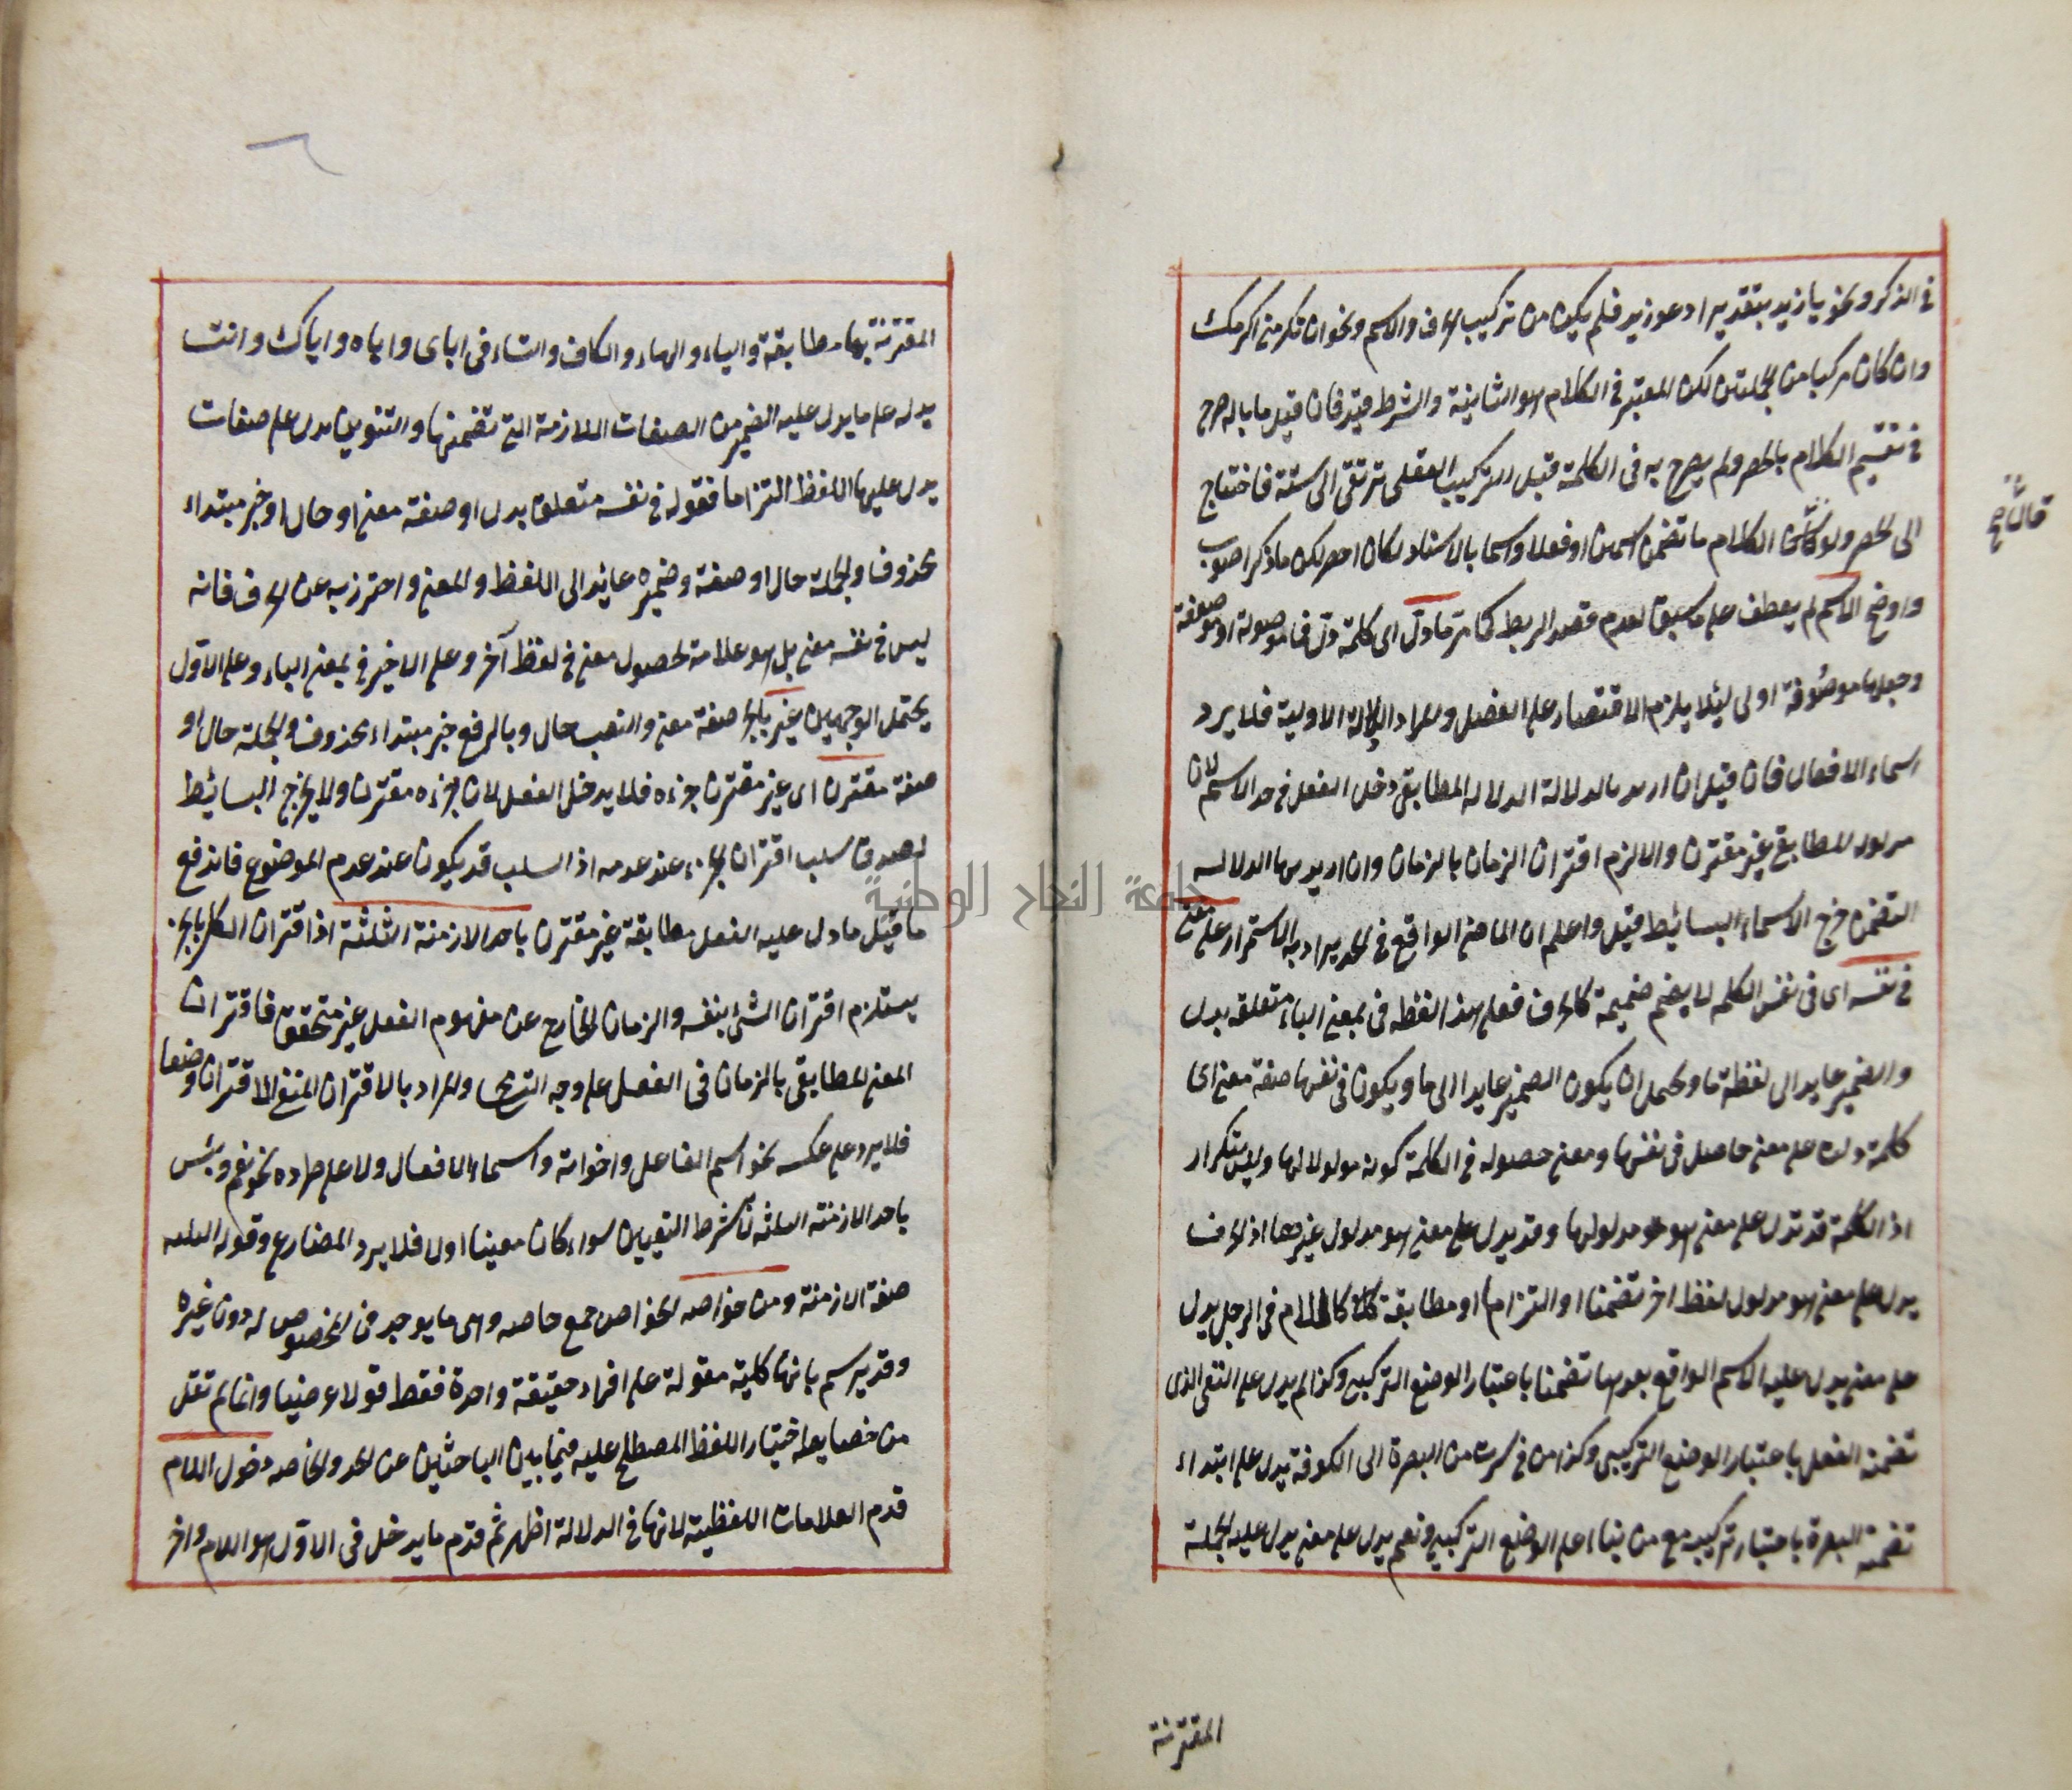 في الذكر ونحو يا زيد بتقدير ادعو زيد فلم يكن من تركيب الحرف والاسم ونحو ان تكرمني اكرمك
وان كان مركبا من الجملتين لكن المعتبر في الكلام هو الثانية والشرط قيد فان قيل ما باله صرح
في تقسيم الكلام بالحصر ولم يصرح به في الكلمة قيل التركيب العقلي ترتقي الى ستة فاحتاج
الى الحصر ولو قال الكلام ما تضمن اسمين او فعلا واسما بالاسناد لكان احصر لكن ما ذكر اصوب
قال
واوضح الاسم لم يعطف على ما سبق لعدم قصد الربط كما مر ما دل اى كلمة دل فما موصولة او موصوفة
وجعلها موصوفة اولى لئلا يلزم الاقتصار على الفصل والمراد الدلالة الاولية فلا يرد
اسماء الافعال فان قيل ان اريد بالدلالة الدلالة المطابقي دخل الفعل في حد الاسم لان
مدلوله المطابقي غير مقترن والا لزم اقتران الزمان بالزمان وان اريد بها الدلالة
التضمن خرج الاسماء البسائط قيل واعلم ان الماضي الواقع في الحد يراد به الاستمرار على معنى
في نفسه اى في نفس الكلمة لا يضم ضميمة كالحرف فعلى هذا لفظه في بمعنى الباء متعلقه بدل
والضمير عايد الى لفظة ما ويحمل ان يكون الضمير عايدا الى ما ويكون في نفسها صفة معنى اى
كلمة دلت على معنى حاصل في نفسها ومعنى حصوله في الكلمة كونه مدلولا لها وليس بتكرار
اذ الكلمة قد تدل على معنى هو مدلولها وقد يدل على معنى هو مدلول غيرها اذ الحرف
يدل على معنى هو مدلول لفظ اخر تضمنا او التزاما او مطابقة كاللام في الرجل يدل
على معنى يدل عليه الاسم الواقع بعدها تضمنا باعتبار الوضع التركيبي وكذا لم يدل على النفي الذى
تضمنه الفعل باعتبار الوضع التركيبي وكذا من في سرت من البصرة الى الكوفة يدل على ابتداء
تضمنه البصرة باعتبار تركيبه مع من بناء على الوضع التركيبي ونعم يدل على معنى يدل عليه الجملة
المقترنة
المقترنة بها مطابقة والياء والهاء والكاف والتاء في اياى واياه واياك وانت
يدل على ما يدل عليه الضمير من الصفات اللازمة التي تضمنها والتنوين يدل على صفات
يدل عليها اللفظ التزاما فقوله في نفسه متعلق بدل او صفة معنى او حال او خبر مبتداء
محذوف والجملة حال او صفة وضميره عايد الى اللفظ والمعنى واحترز به عن الحرف فانه
ليس في نفسه معنى بل هو علامة لحصول معنى في لفظ آخر وعلى الاخير في بمعنى الباء وعلى الاول
يحتمل الوجهين غير بالجر صفة معنى والنصب حال وبالرفع خبر مبتداء محذوف والجملة حال او
صفة مقترن اى غير مقترن جزءه فلا يدخل الفعل لان جزءه مقترن ولا يخرج البسائط
لصدق سلب اقتران الجزء عند عدمه اذ السلب قد يكون عند عدم الموضوع فاندفع
ما قيل ما دل عليه الفعل مطابقة غير مقترن باحد الازمنة الثلثة اذ اقتران الكل بالجزء
يستلزم اقتران الشئ بنفسه والزمان الخارج عن مفهوم الفعل غير متحقق فاقتران
المعنى المطابقي بالزمان في الفعل على وجه التسامح والمراد بالاقتران المنفي الاقتران وضعا
فلا يرد على عكسه نحو اسم الفاعل واخواته واسماء الافعال ولا على طرده نحو نعم وبئس
باحد الازمنة الثلثة شرط التعيين سواء كان معينا اولى فلا يرد المضارع وقوله الثلثة
صفة الازمنة ومن خواصه الخواص جمع خاصه وهى ما يوجد في المخصوص له دون غيره
وقد يرسم بانها كلية مقولة على افراد حقيقة واحدة فقط قولا عرضيا وانما لم تقل
من خصايصه اختيار اللفظ المصطلح عليه فيما بين الباحثين عن الحد والخاصه دخول اللام
قدم العلامات اللفظية لانها في الدلالة اظهر ثم قدم ما يدخل في الاول هو اللام واخر
جامعة النجاح الوطنية